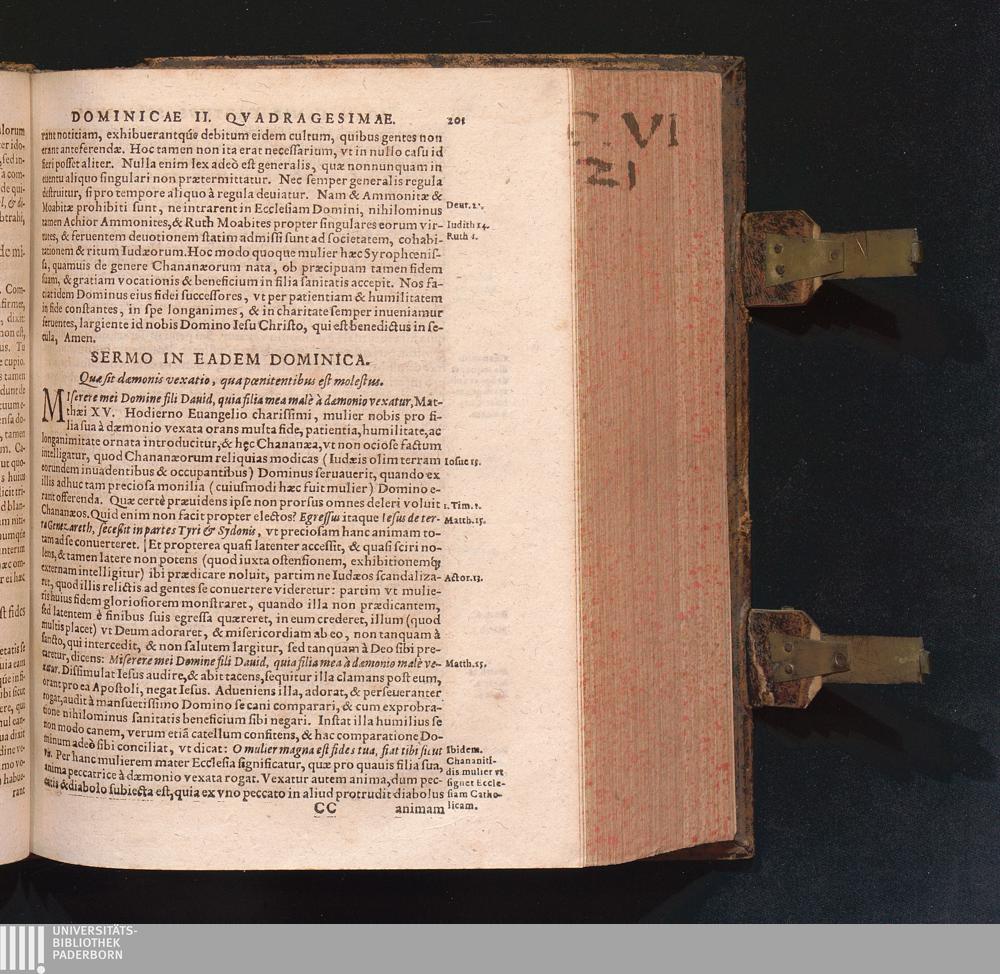 DOMINICAE II. QVADRAGESIMAE. 201
rant notitiam, exhibuerantq́ue debitum eidem cultum, quibus gentes non
erant anteferendæ. Hoc tamen non ita erat necessarium, vt in nullo casu id
fieri posset aliter. Nulla enim lex adeò est generalis, quæ nonnunquam in
euentu aliquo singulari non prætermittatur. Nec semper generalis regula
destruitur, si pro tempore aliquo à regula deuiatur. Nam & Ammonitæ &
Moabitæ prohibiti sunt, ne intrarent in Ecclesiam Domini, nihilominus
tamen Achior Ammonites, & Ruth Moabites propter singulares eorum vir-
tutes, & feruentem deuotionem statim admissi sunt ad societatem, cohabi-
tationem & ritum Iudæorum. Hoc modo quoque mulier hæc Syrophœnis-
sa, quamuis de genere Chananæorum nata, ob præcipuam tamen fidem
suam, & gratiam vocationis & beneficium in filia sanitatis accepit. Nos fa-
ciat idem Dominus eius fidei successores, vt per patientiam & humilitatem
in fide constantes, in spe longanimes, & in charitate semper inueniamur
feruentes, largiente id nobis Domino Iesu Christo, qui est benedictus in se-
cula, Amen.
Deut. 2
Iudith 14.
Ruth 1.
SERMO IN EADEM DOMINICA.
Quæ sit dæmonis vexatio, qua pœnitentibus est molestus.
MIserere mei Domine fili Dauid, quia filia mea malè à dæmonio vexatur, Mat-
thæi XV. Hodierno Euangelio charissimi, mulier nobis pro fi-
lia sua à dæmonio vexata orans multa fide, patientia, humilitate, ac
longanimitate ornata introducitur, & hęc Chananæa, vt non ociose factum
intelligatur, quod Chananæorum reliquias modicas (Iudæis olim terram
eorundem inuadentibus & occupantibus) Dominus seruauerit, quando ex
illis adhuc tam preciosa monilia (cuiusmodi hæc fuit mulier) Domino e-
rant offerenda. Quæ certè præuidens ipse non prorsus omnes deleri voluit
Chananæos. Quid enim non facit propter electos? Egressus itaque Iesus de ter-
ra Genezareth, secessit in partes Tyri & Sydonis, vt preciosam hanc animam to-
tam ad se conuerteret. Et propterea quasi latenter accessit, & quasi sciri no-
lens, & tamen latere non potens (quod iuxta ostensionem, exhibitionemq́;
externam intelligitur) ibi prædicare noluit, partim ne Iudæos scandaliza-
ret, quod illis relictis ad gentes se conuertere videretur: partim vt mulie-
ris huius fidem gloriosiorem monstraret, quando illa non prædicantem,
sed latentem è finibus suis egressa quæreret, in eum crederet, illum (quod
multis placet) vt Deum adoraret, & misericordiam ab eo, non tanquam à
sancto, qui intercedit, & non salutem largitur, sed tanquam à Deo sibi pre-
caretur, dicens: Miserere mei Domine fili Dauid, quia filia mea à dæmonio malè ve-
xatur. Dissimulat Iesus audire, & abit tacens, sequitur illa clamans post eum,
orant pro ea Apostoli, negat Iesus. Adueniens illa, adorat, & perseueranter
rogat, audit à mansuetissimo Domino se cani comparari, & cum exprobra-
tione nihilominus sanitatis beneficium sibi negari. Instat illa humilius se
non modo canem, verum etiā catellum confitens, & hac comparatione Do-
minum adeò sibi conciliat, vt dicat: O mulier magna est fides tua, fiat tibi sicut
vis. Per hanc mulierem mater Ecclesia significatur, quæ pro quauis filia sua,
anima peccatrice à dæmonio vexata rogat. Vexatur autem anima, dum pec-
catis & diabolo subiecta est, quia ex vno peccato in aliud protrudit diabolus
CC animam
Iosue 15.
1. Tim. 2.
Matth. 15.
Actor. 13.
Matth. 15.
Ibidem.
Chananiti-
dis mulier vt
signet Eccle-
siam Catho-
licam.
VI
21
UNIVERSITÄTS-
BIBLIOTHEK
PADERBORN